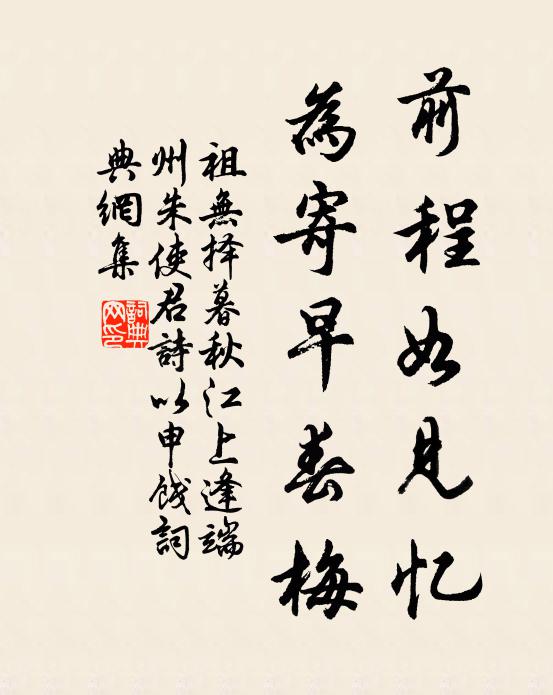 前程如见忆
為寄早春梅
祖無择暮秋江上逢端
州朱使君詩以申餞詞
典網集
詞典网印